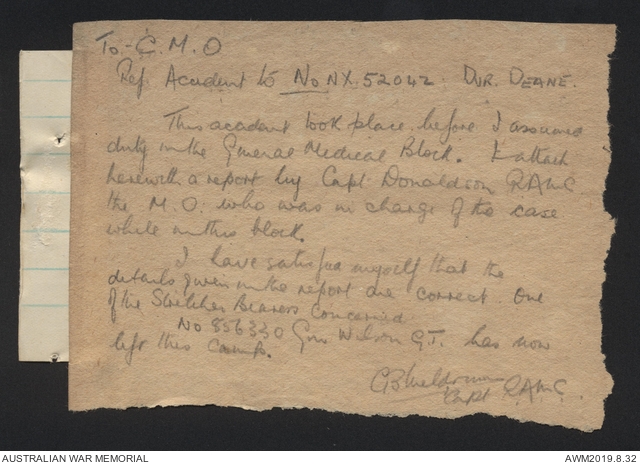 To:- C. M. O
Ref. Accident to No NX. 52042. Dvr. DEANE.
This accident took place before I assumed
duty in the General Medical Block. I attach
herewith a report by Capt Donaldson RAMC
the M.O. who was in charge of the case
while in this block.
I have satisfied myself that the
details given in the report are correct. One
of the Stretcher Bearers concerned
No 856330 Gnr Wilson G.T. has now
left this camp.
Capt RAMC.
AUSTRALIAN WAR MEMORIAL
AWM2019.8.32